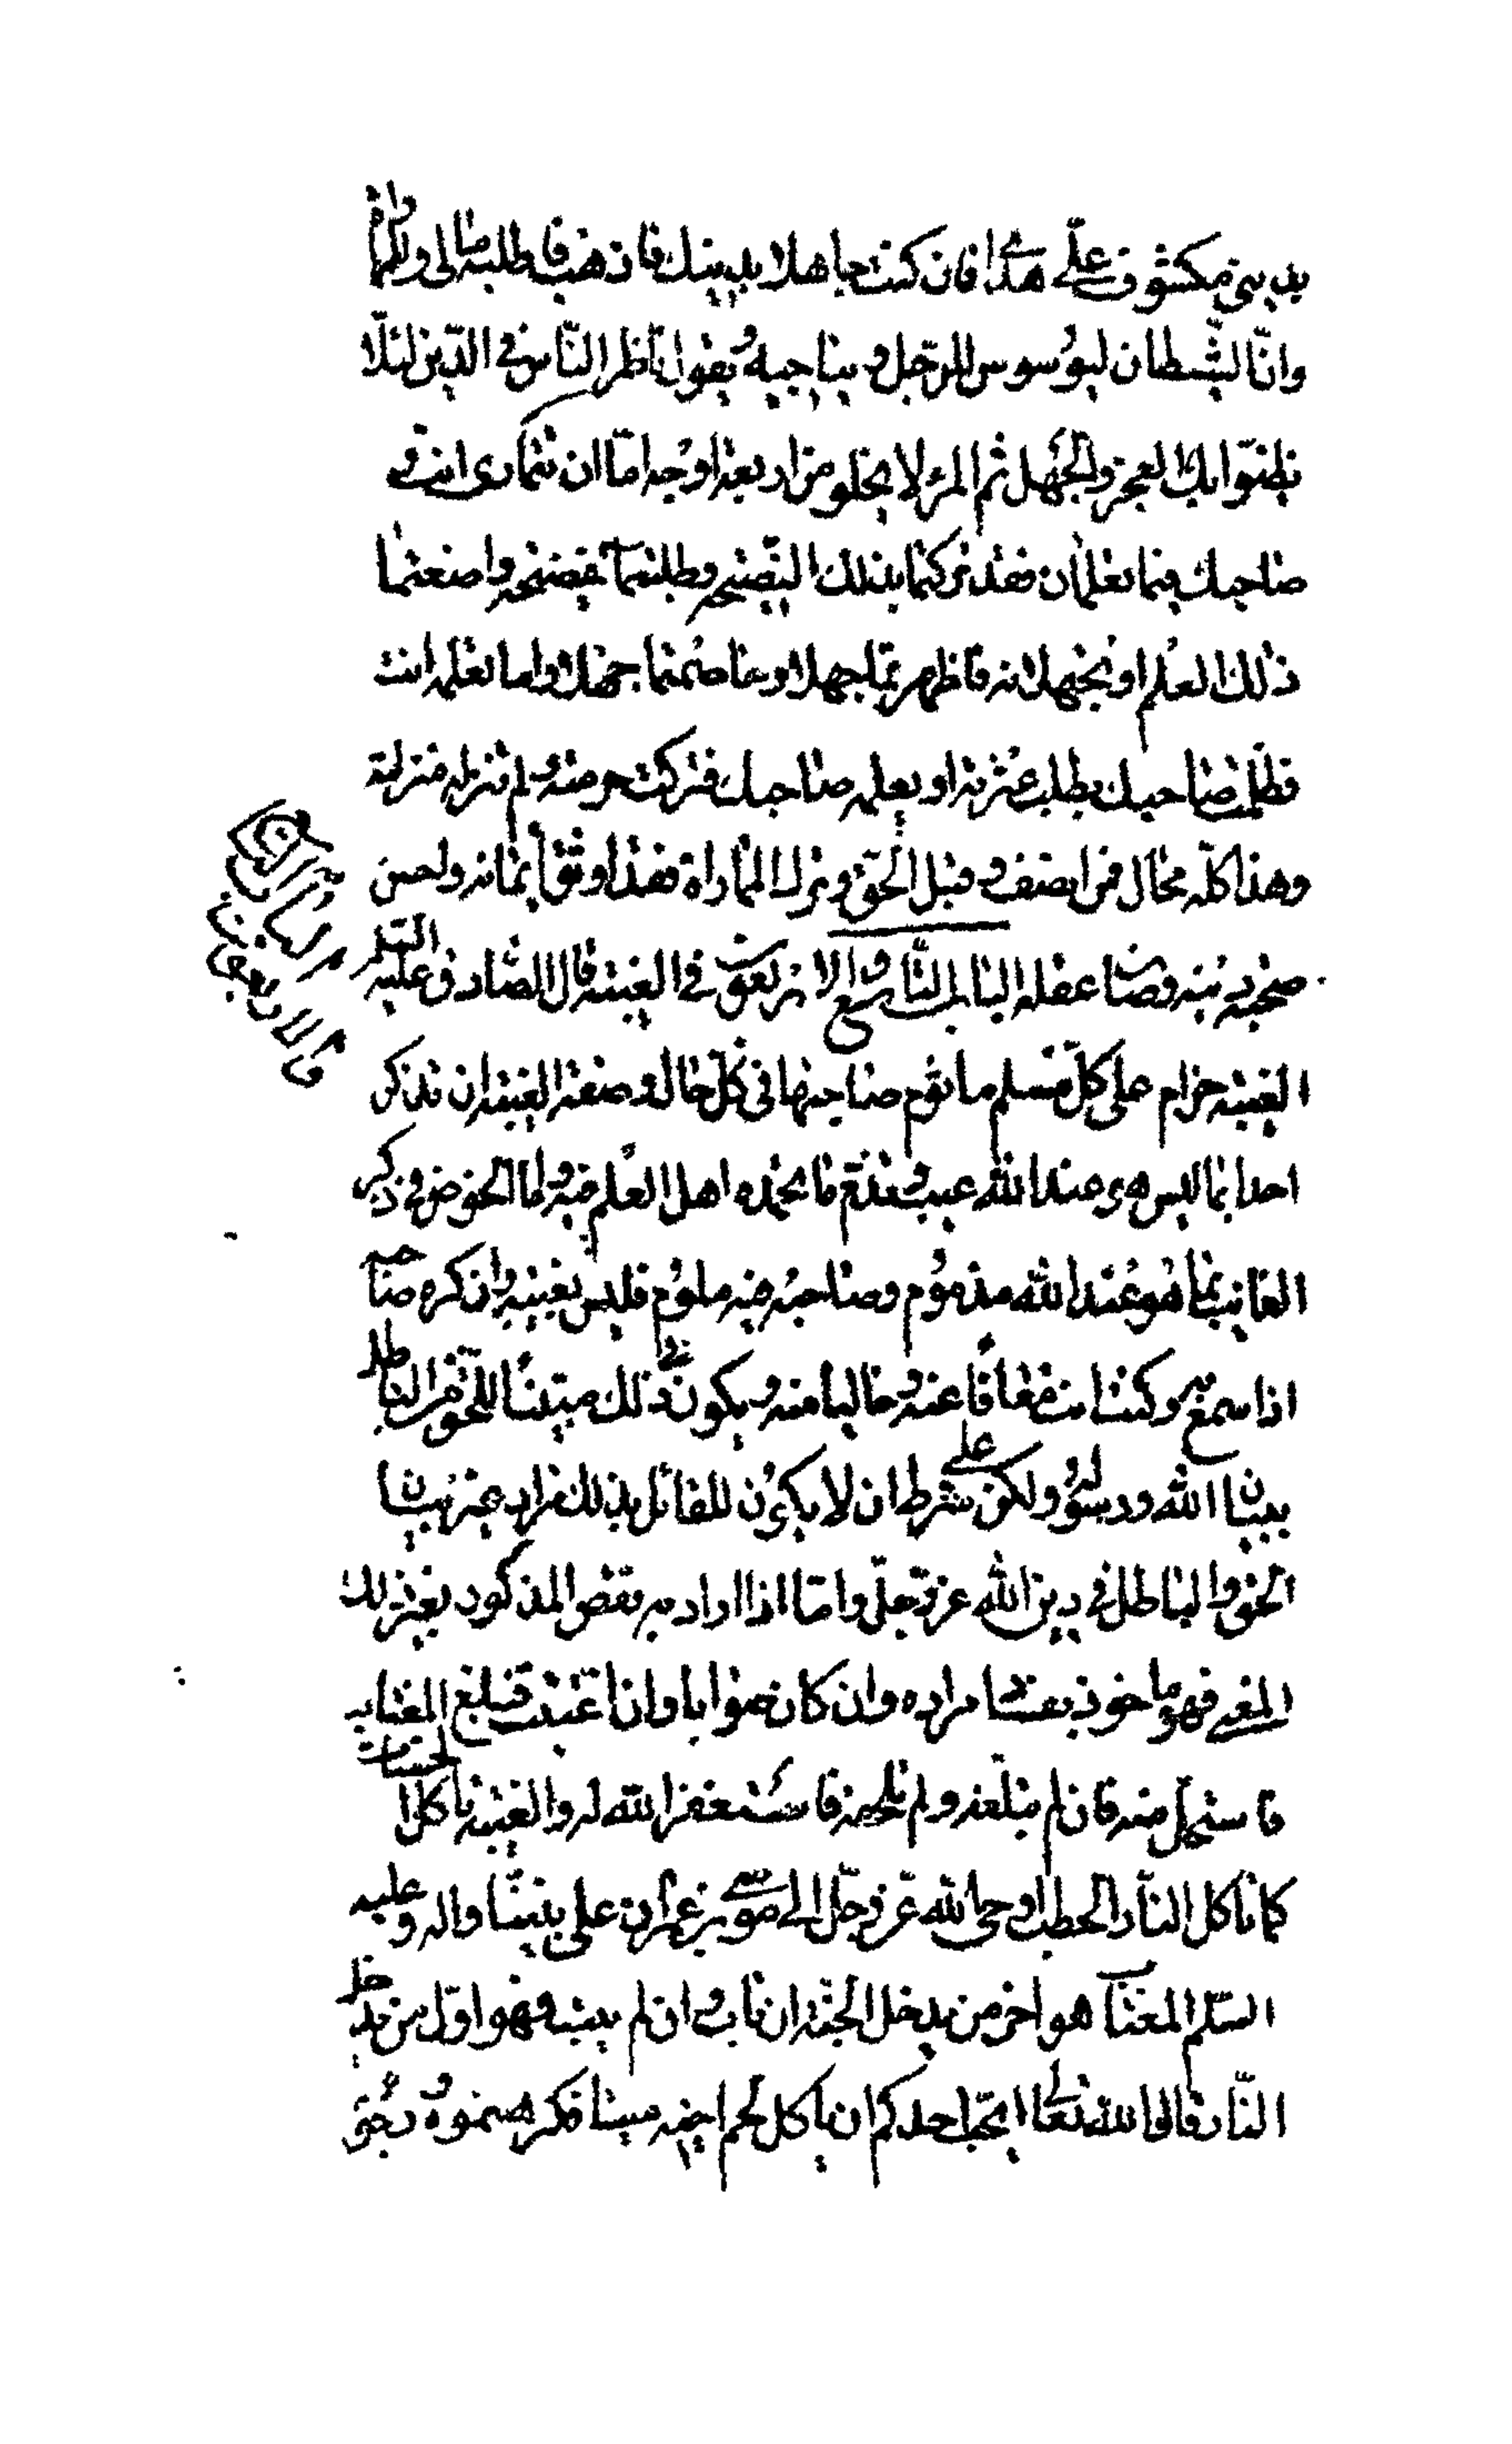 بديني مكشوف علي هداي فان كنت جاهلا بدينك فاذهب فاطلبه مالي وللمماراة
وانّ الشيطان ليوسوس للرّجل ويناجيه ويقول ناظر النّاس في الدّين لئلّا
يظنّوا بك العجز والجهل ثم المرء لا يخلو من اربعة اوجه امّا ان تتمارى انت و
صاحبك فيما تعلمان فقد تركتما بذلك النّصيحه وطلبتما الفضيحه واضعتما
ذلك العلم او تجهلانه فاظهرتما جهلا وخاصمتما جهلا واما تعلمه انت
فظلمت صاحبك بطلب عثرته او يعلمه صاحبك فتركت حرمته ولم تنزله منزلته
وهذا كلّه محال فمن انصف وقبل الحقّ وترك المماراة فقد اوثق ايمانه واحسن
صحبة دينه وصان عقله الباب التاسع والاربعون في الغيبة قال الصّادق عليه السّلم
الغيبة حرام على كلّ مسلم ماثوم صاحبها في كلّ حال وصفة الغيبة ان تذكر
احدا بما ليس هو عند الله عيب وتذمّ ما يحمده اهل العلم فيه واما الخوض في ذكر
الغائب بما هو عند الله مذموم وصاحبه فيه ملوم فليس بغيبة وان كره صاحبه
اذا سمع به وكنت انت معافا عنه وخاليا منه ويكون في ذلك مبيّنا للحّق من الباطل
ببيان الله ورسوله ولكن على شرط ان لا يكون للقائل بذلك مراد غير بيان
الحق والباطل في دين الله عز وجلّ وامّا اذا اراد به نقض المذكور بغير ذلك
المعنى فهو ماخوذ بفساد مراده وان كان صوابا وان اغتبت فبلغ المغتاب
فاستحلّ منه فان لم تبلغه ولم تلحقه فاستغفر الله له والغيبة تاكل الحسنات
كما تاكل النّار الحطب اوحى الله عزّ وجلّ الى موسى بن عمران على نبيّنا واله وعليه
السّلم المغتاب هو اخر من يدخل الجنّة ان تاب وان لم يتب فهو اوّل من يدخل
النّار قال الله تعالى ايحّب احدكم ان ياكل لحم اخيه ميتا فكرهتموه ووجوه